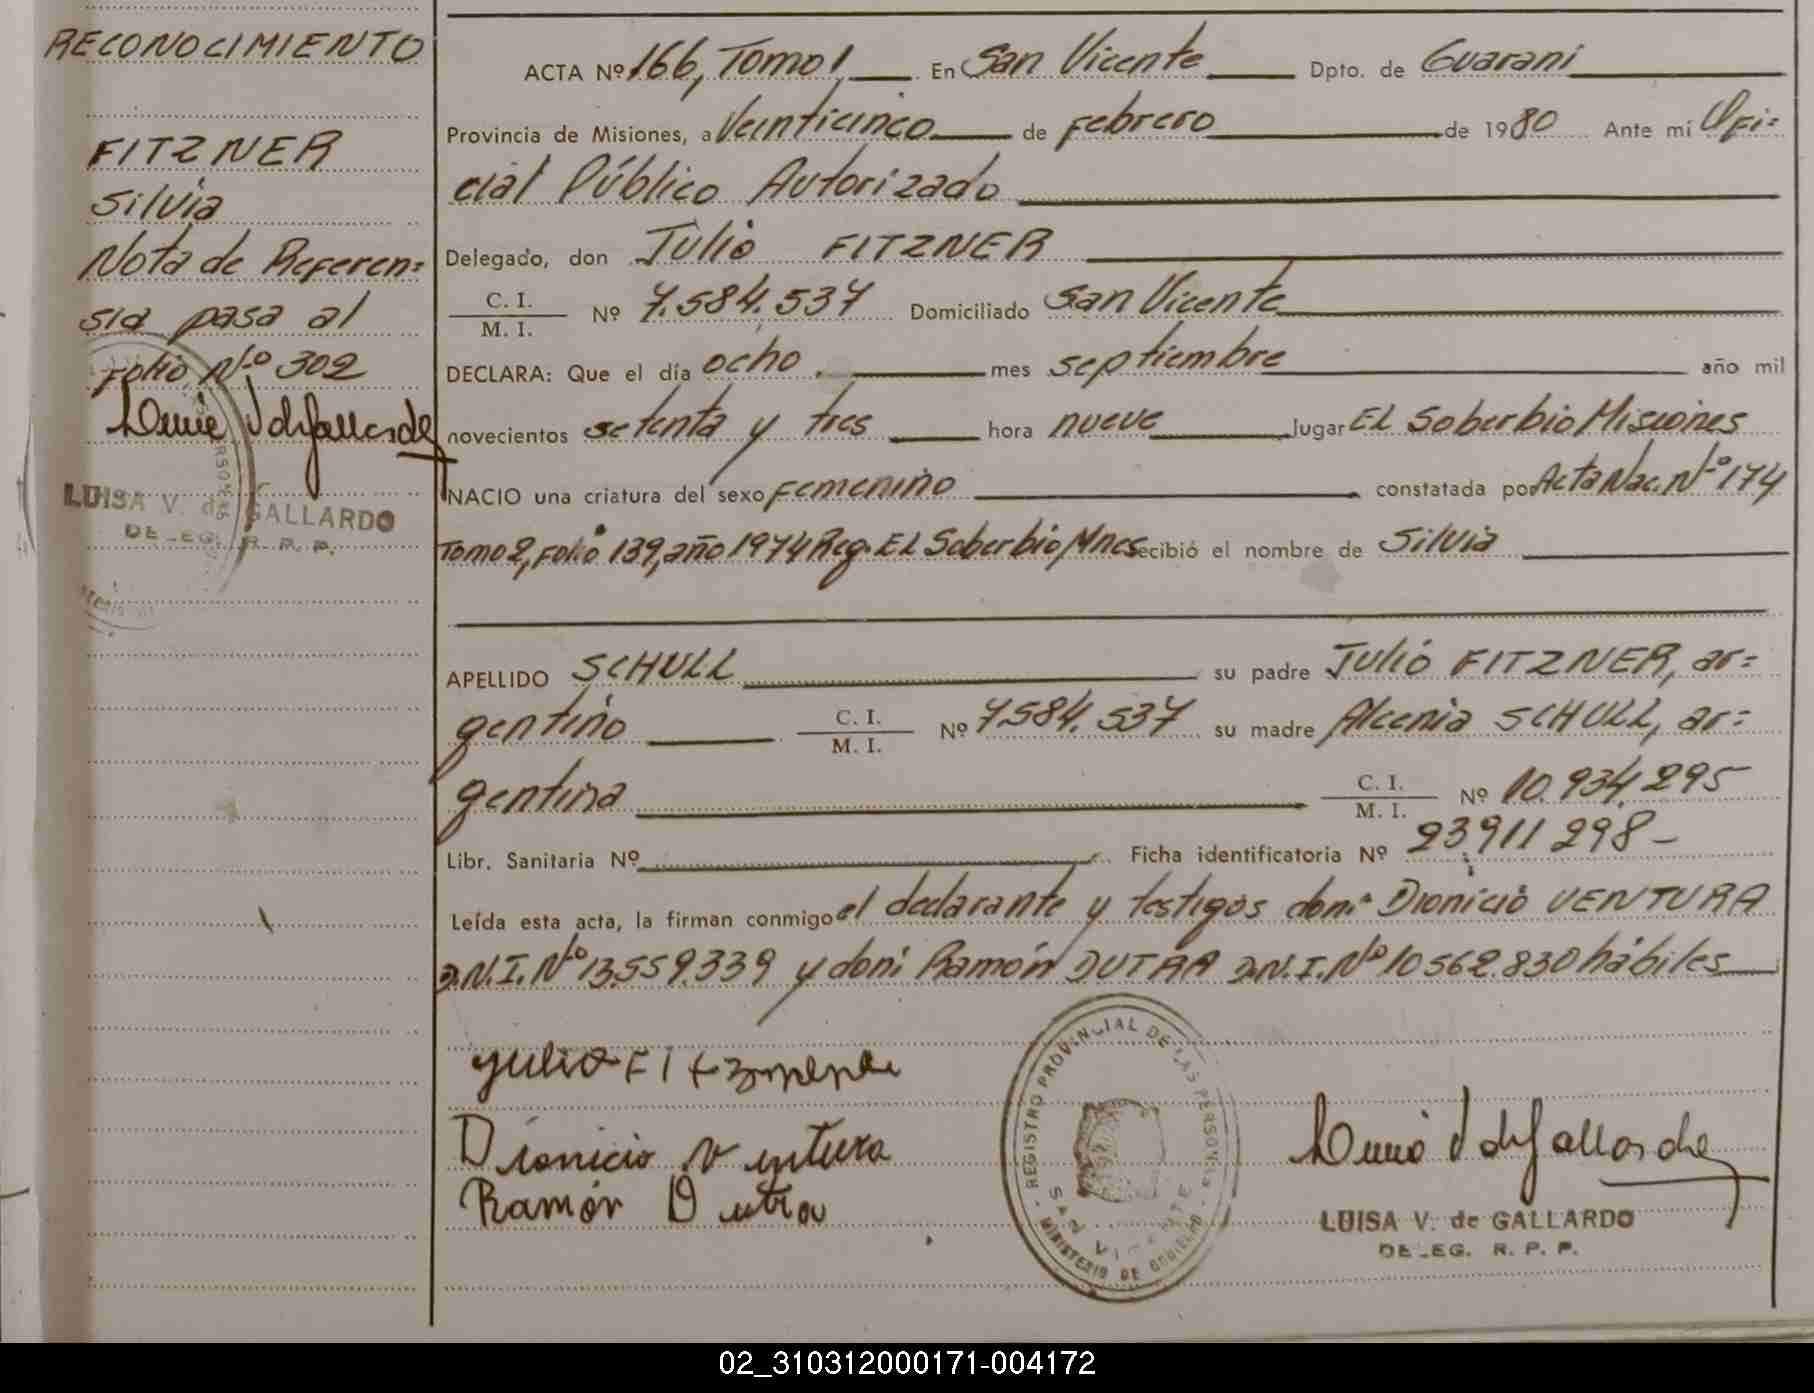 RECONOCIMIENTO
FITZNER
Silvia
Nota de Referen=
sia pasa al
Folio N.º 302
LUISA V. de GALLARDO
DELEG. R. P. P.
ACTA Nº 166, Tomo 1 En San Vicente Dpto. de Guarani
Provincia de Misiones, a Veinticinco de Febrero de 1980 Ante mí Ofi=
cial Público Autorizado
Delegado, don Julio FITZNER
C. I.
M. I. Nº 7.584.537 Domiciliado San Vicente
DECLARA: Que el día ocho mes septiembre año mil
novecientos setenta y tres hora nueve lugar EL Soberbio Misiones
NACIO una criatura del sexo Femenino constatada por Acta Nac. Nº 174
Tomo 2, Folio 139, año 1974 Reg. EL Soberbio Mnes ecibió el nombre de Silvia
APELLIDO SCHULL su padre Julio FITZNER, ar=
gentino C. I.
M. I. Nº 7584.537 su madre Alcenia SCHULL, ar=
gentina C. I.
M. I. Nº 10.934.295
Libr. Sanitaria Nº Ficha identificatoria Nº 23911298-
Leída esta acta, la firman conmigo el declarante y testigos don: Dionicio VENTURA
D.N.I. Nº 13.559.339 y don: Ramón DUTRA D.N.I. Nº 10562.830 hábiles
Dionicio Ventura
Ramón Dutra
REGISTRO PROVINCIAL DE LAS PERSONAS
SAN VICENTE
MINISTERIO DE GOBIERNO
LUISA V. de GALLARDO
DELEG. R. P. P.
02_310312000171-004172